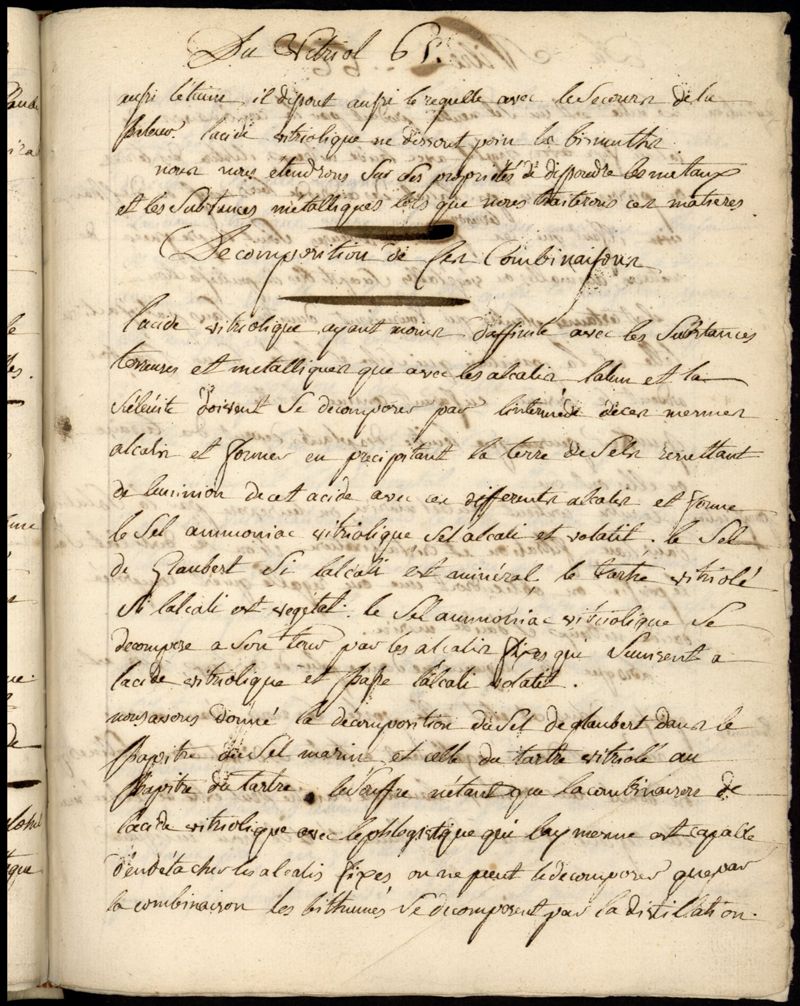 Du Vitriol 65.
aussi l'étain, il dissout aussi le regulle avec le secours de la
lacide vitriolique ne dissout poin le bismuthe.
nous nous etendrons sur ces propriétés de dissoudre les metaux
et les substances métalliques lors que nous traiterons ces matieres.
Décomposition de ses Combinaisons
lacide vitriolique ayant moins daffinité avec les substances
terreuses et metalliques que avec les alcalis lalun et la
sélénite doivent se decomposer par lintermede de ces mermes
alcalis et former en précipitant la terre de sels resultant
de lunion de cet acide avec ces differents alcalis et forme
le sel ammoniac vitriolique sel alcali et volatil. le sel
de Glaubert si lalcali est minéral le tartre vitriolé
si lalcali est vegetal. le sel ammoniac vitriolique se
decompose a son tour par les alcalis fixes qui sunissent a
lacide vitriolique et lalcali volatil.
nous avons donné la decomposition du sel de glaubert dans le
chapitre du sel marin et celle du tartre vitriolé au
chapitre du tartre. le souffre nétant que la combinaison de
lacide vitriolique avec le phlogistique qui luy merme est capable
d'en détacher les alcalis fixes on ne peut le decomposer que par
la combinaison les bithumes se decomposent par la distillation.